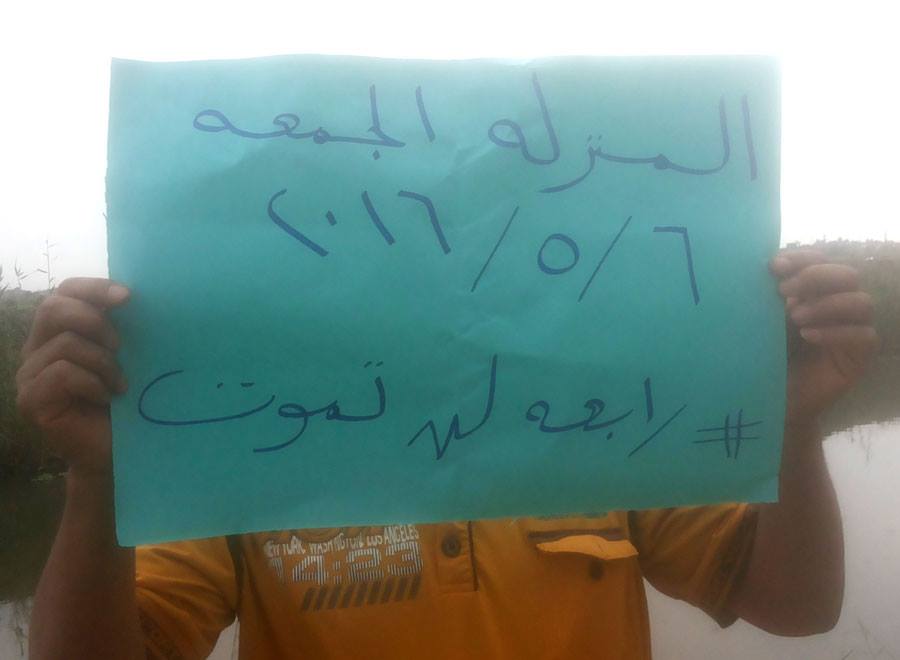 المنزله الجمعه
٢٠١٦/٥/٦
#رابعه لن تموت
NEW YORK, WASHINGTON, LOS ANGELES
14.23